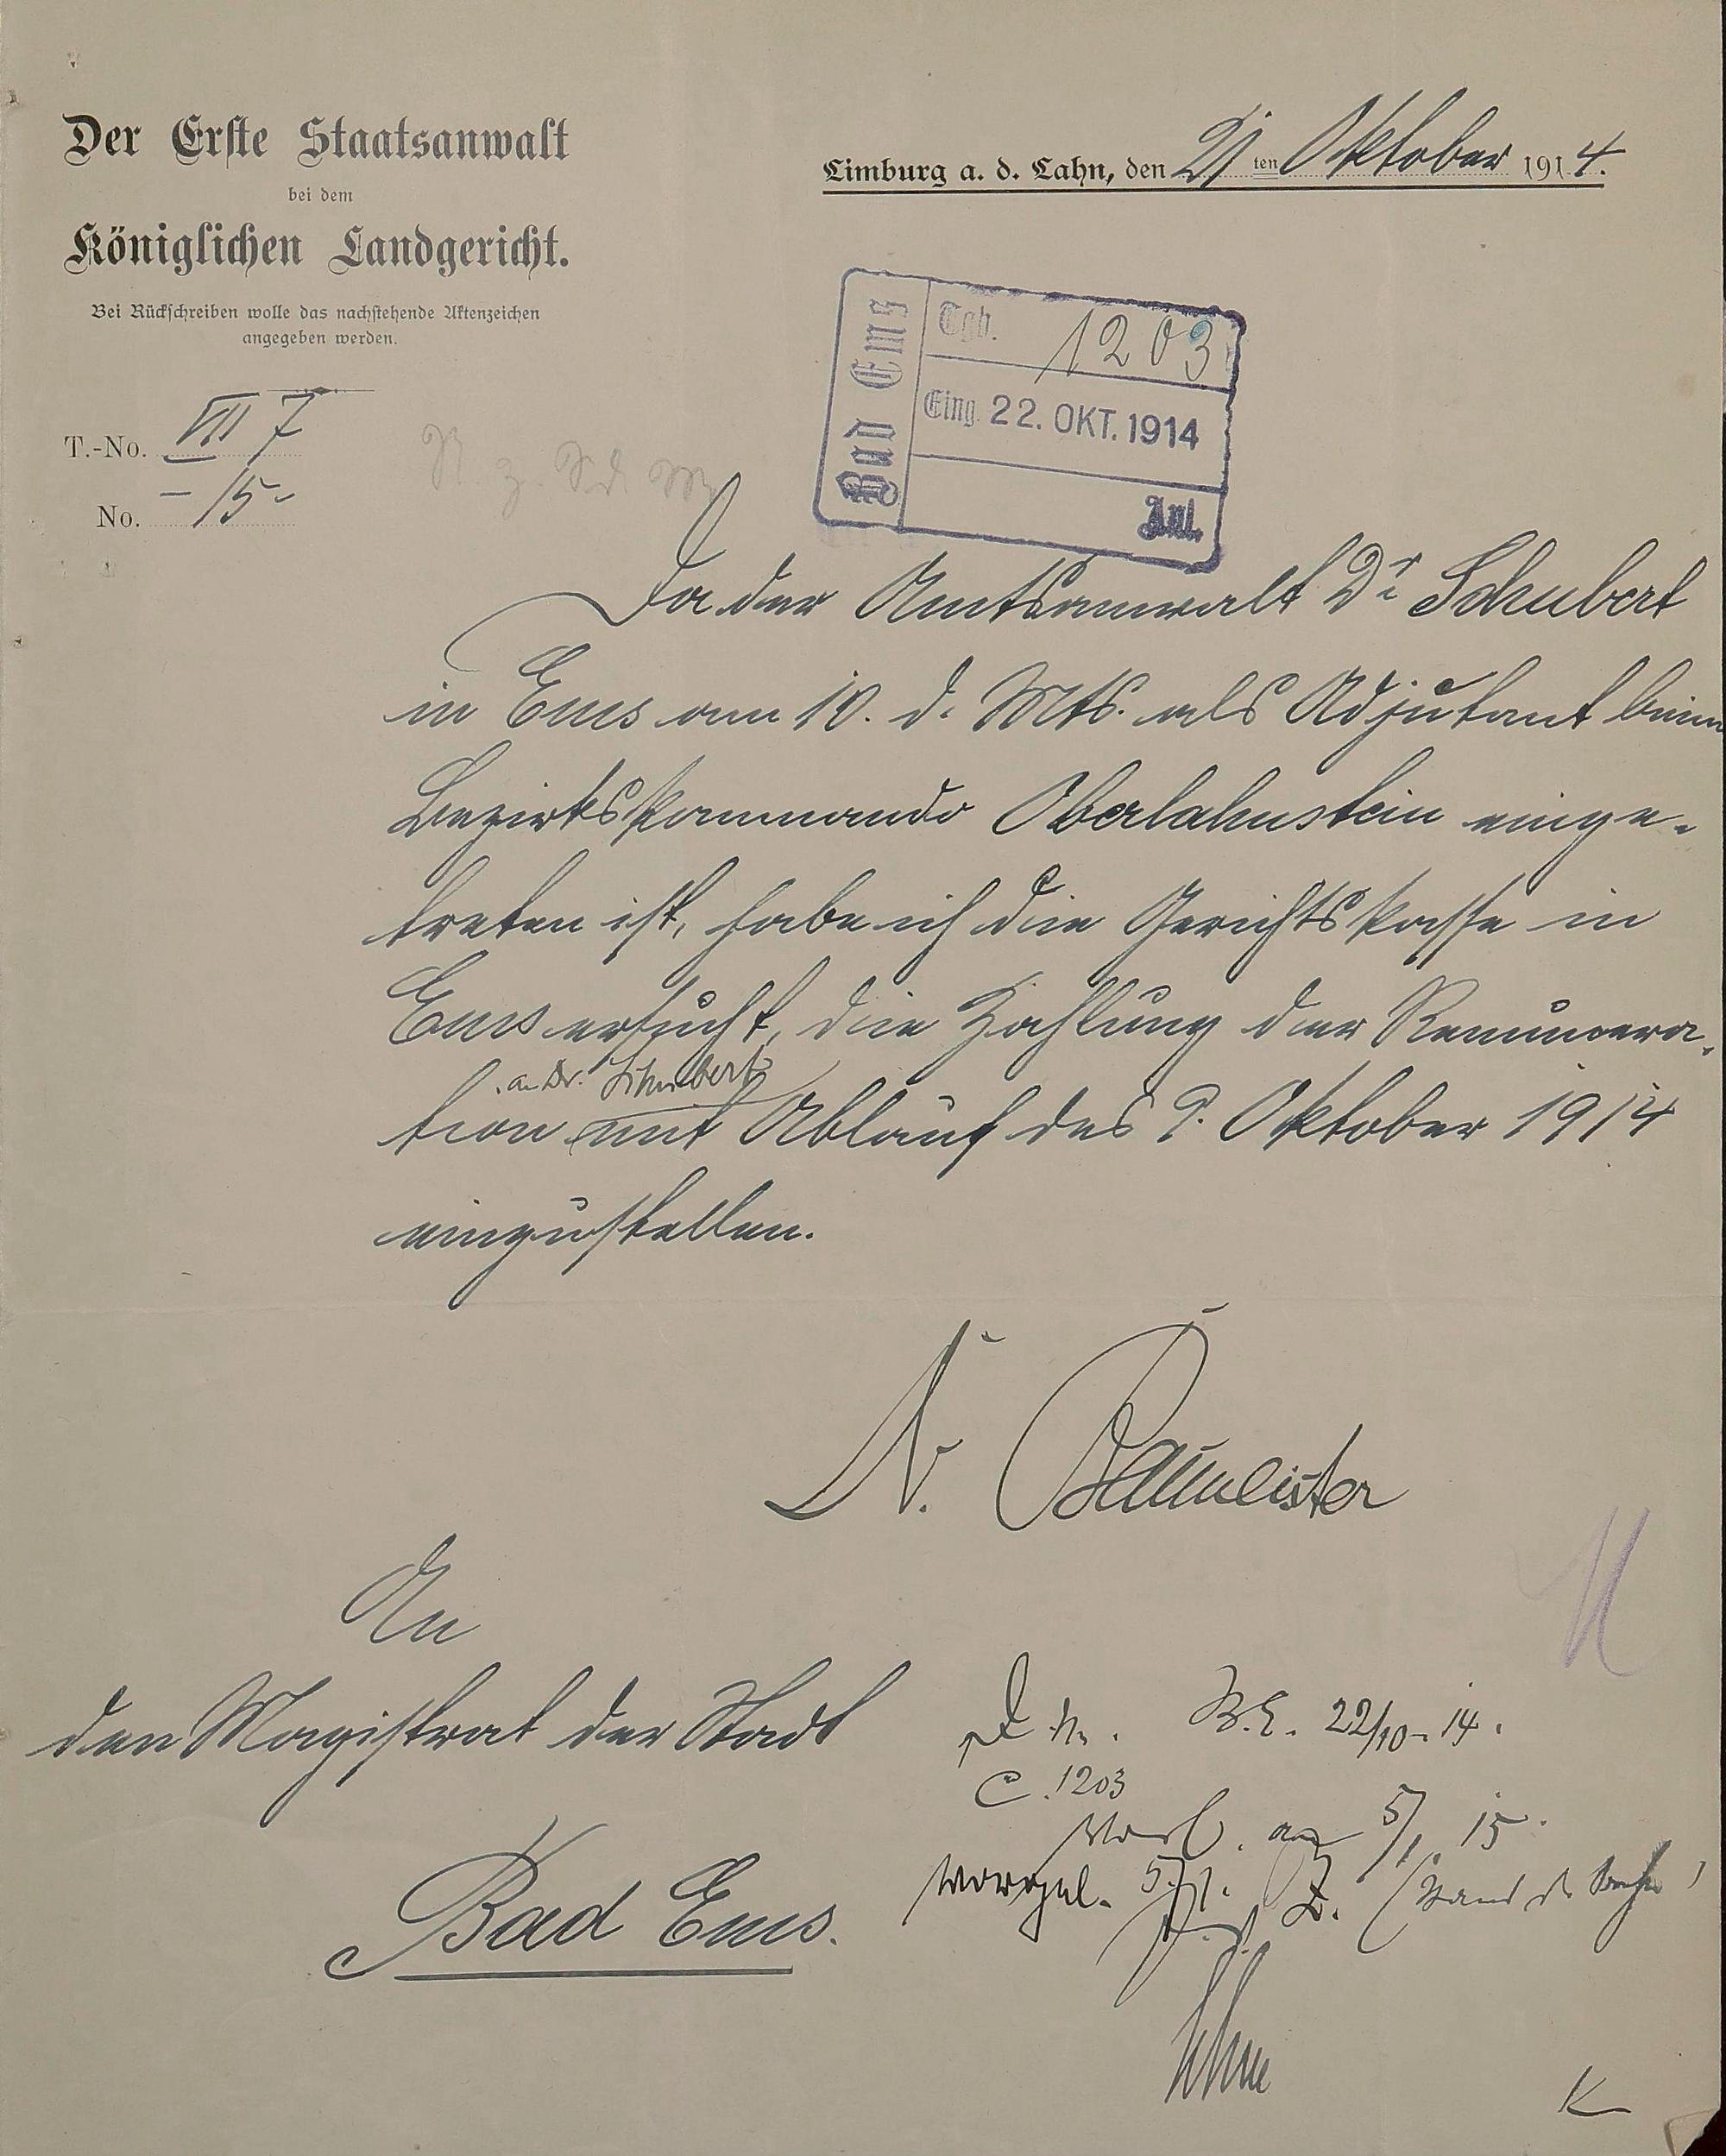 Der Erste Staatsanwalt
bei dem
Königlichen Landgericht.
Bei Rückschreiben wolle das nachstehende Aktenzeichen
angegeben werden.
Limburg a. d. Lahn, den 21 ten Oktober 1914.
T.-No. VIII 7
No. 15
Bad Ems
Tgb. 1203
Eing. 22. OKT. 1914
Anl.
Da der Amtsanwalt Dr Schubert
in Ems am 10. d. Mts. als Adjutant beim
Bezirkskommando Oberlahnstein einge-
treten ist, habe ich die Gerichtskasse in
Ems ersucht, die Zahlung der Remunera-
an Dr. Schubert
tion mit Ablauf des 9. Oktober 1914
einzustellen.
Baumeister
An
den Magistrat der Stadt
Bad Ems.
B.E. 22/10. 14.
C. 1203
5/1. 15.
vorgel. 5/1.
K